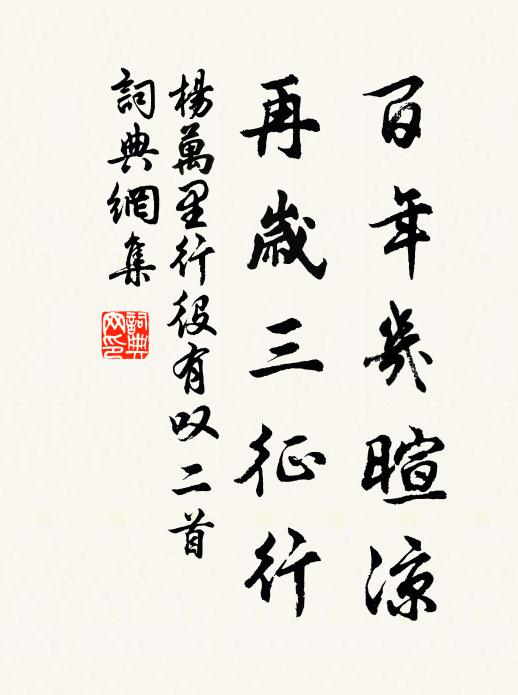 百年幾暄涼
再歲三征行
楊萬里行役有叹二首
詞典網集
詞典网印